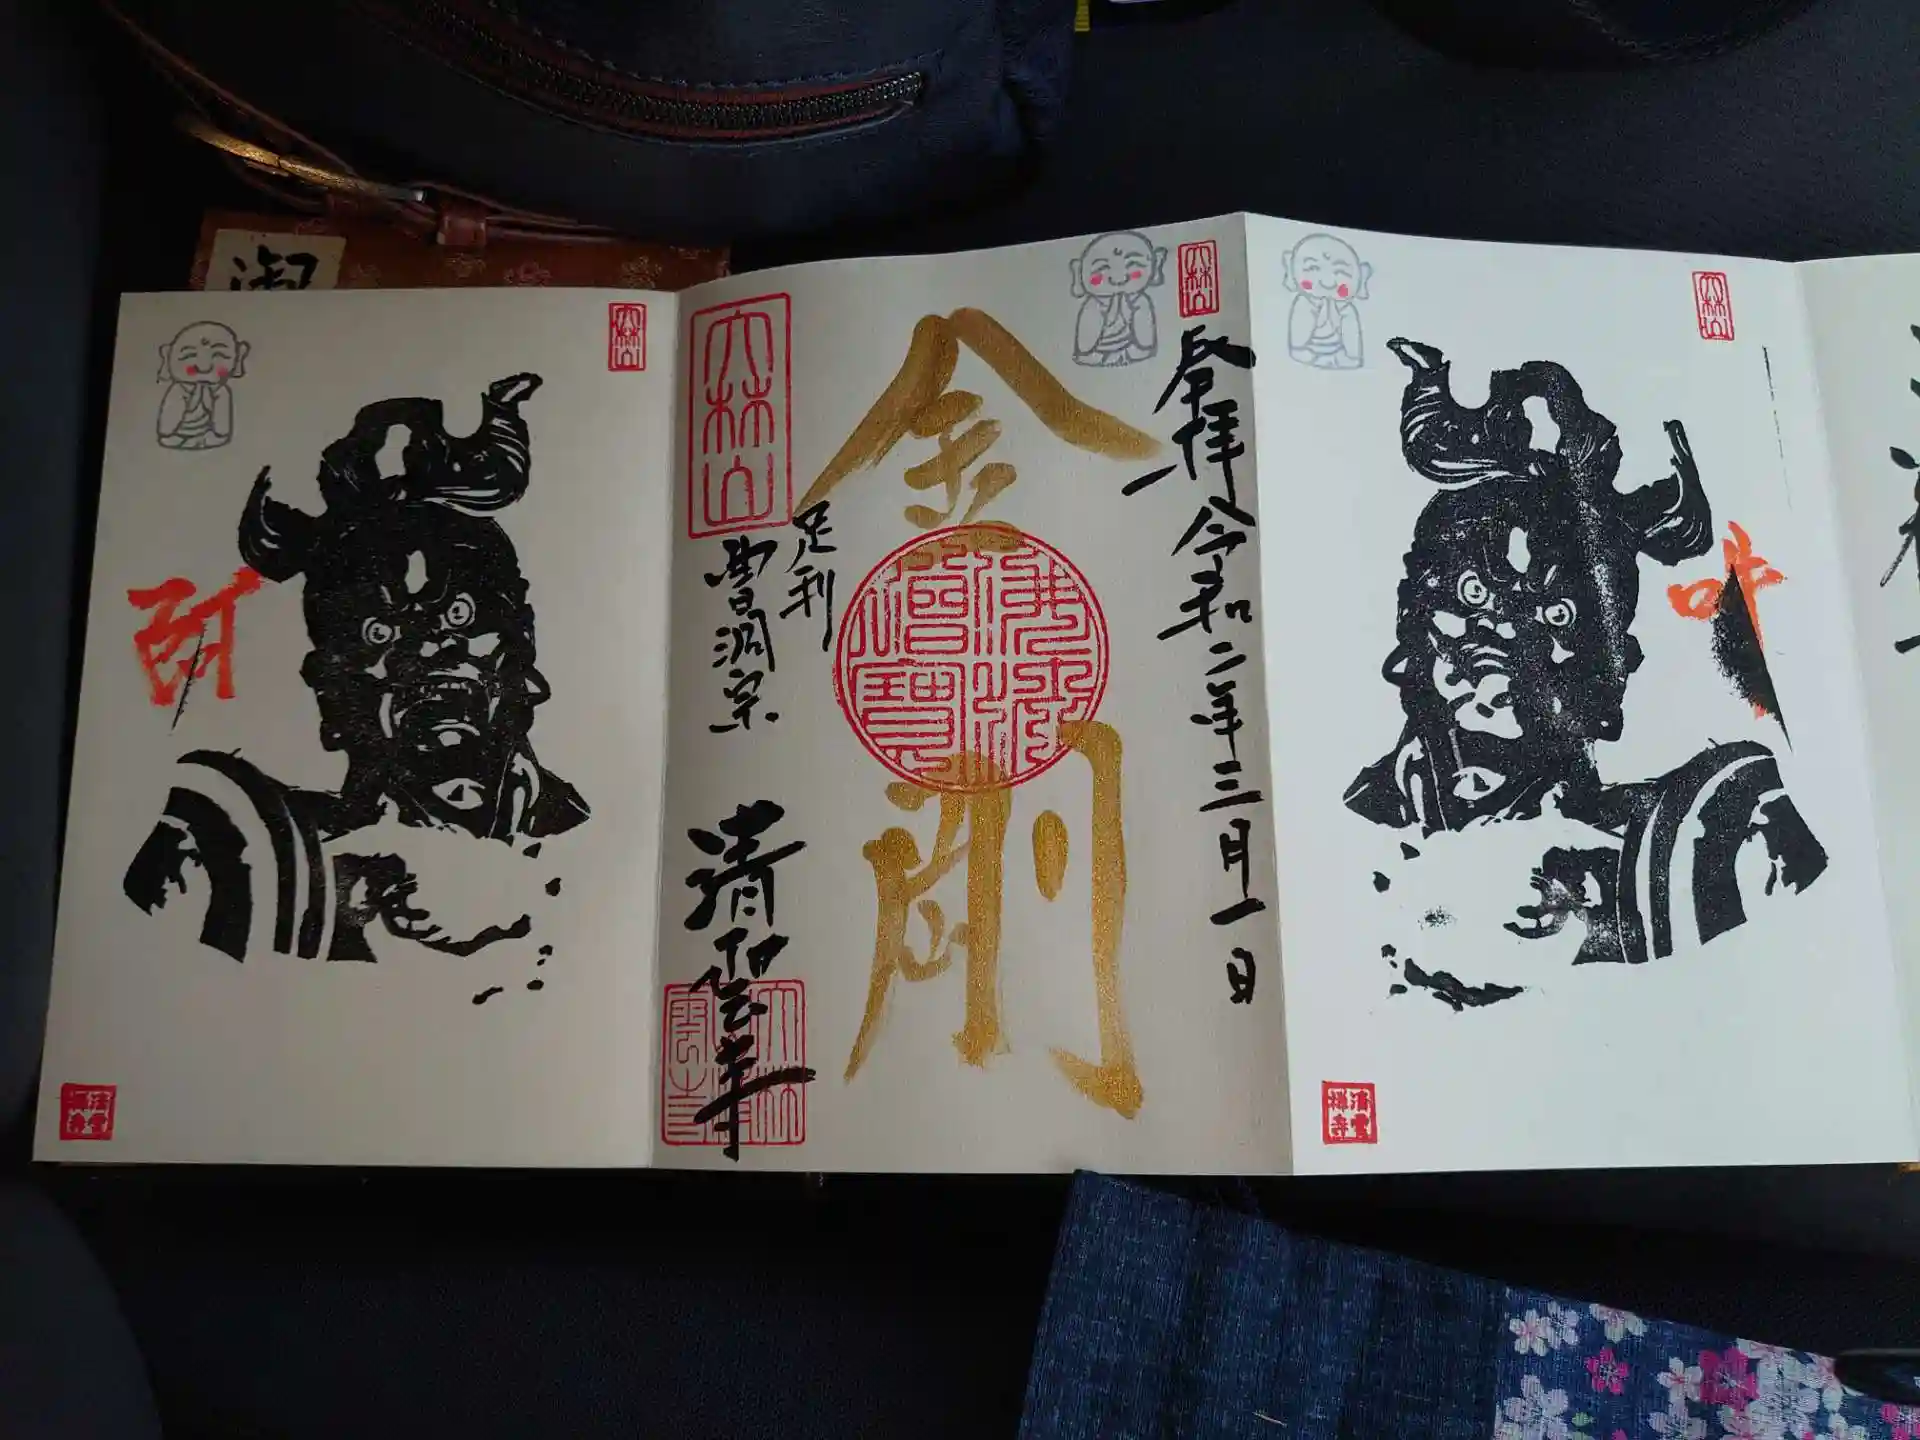 御
大林山
吽
清雲
禅寺
大林山
参拝 令和二年三月一日
金剛
佛法僧寶
大林山
足利
曹洞宗 清雲寺
大林山
阿
清雲
禅寺